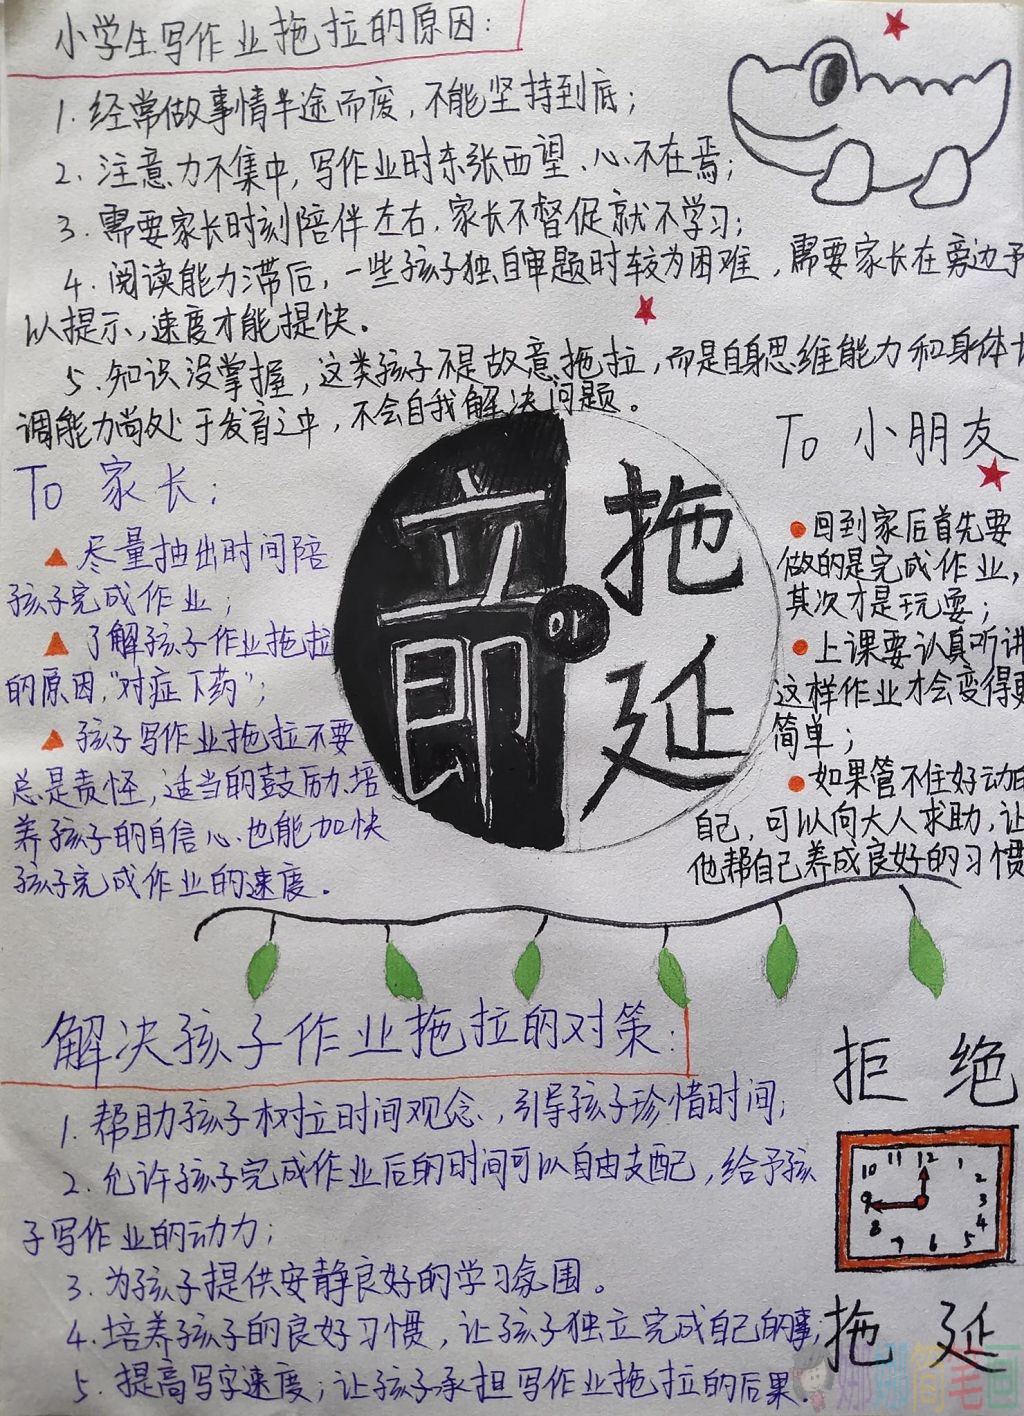 小学生写作业拖拉的原因:
1. 经常做事情半途而废,不能坚持到底;
2. 注意力不集中,写作业时东张西望、心不在焉;
3. 需要家长时刻陪伴左右,家长不督促就不学习;
4. 阅读能力滞后,一些孩子独自审题时较为困难,需要家长在旁边予
以提示,速度才能提快。
5. 知识没掌握,这类孩子不是故意拖拉,而是自身思维能力和身体
调能力尚处于发育之中,不会自我解决问题。
To 家长:
尽量抽出时间陪
孩子完成作业;
了解孩子作业拖拉
的原因,"对症下药";
孩子写作业拖拉不要
总是责怪,适当的鼓励、培
养孩子的自信心、也能加快
孩子完成作业的速度。
立即
or
拖延
To 小朋友
回到家后首先要
做的是完成作业,
其次才是玩耍;
上课要认真听讲
这样作业才会变得更
简单;
如果管不住好动的
自己,可以向大人求助,让
他帮自己养成良好的习惯
解决孩子作业拖拉的对策:
1. 帮助孩子树立时间观念,引导孩子珍惜时间;
2. 允许孩子完成作业后的时间可以自由支配,给予孩
子写作业的动力;
3. 为孩子提供安静良好的学习氛围。
4. 培养孩子的良好习惯,让孩子独立完成自己的事;
5. 提高写字速度;让孩子承担写作业拖拉的后果.
拒绝
12 1 2 3 4 5 6 7 8 9 10 11
拖延
娜娜简笔画